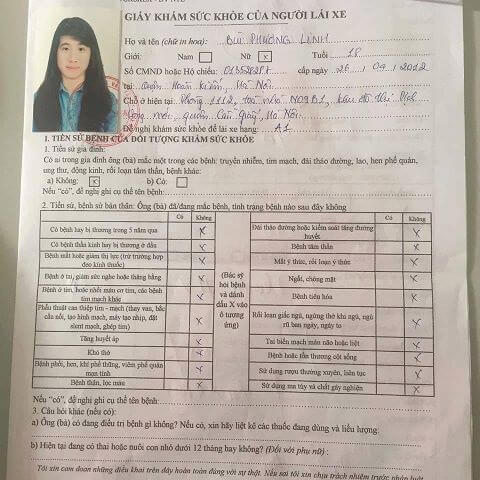 GIẤY KHÁM SỨC KHỎE CỦA NGƯỜI LÁI XE
Họ và tên (chữ in hoa): BÙI PHƯƠNG LINH
Giới: Nam Nữ X Tuổi 18
Số CMND hoặc Hộ chiếu: cấp ngày 26 / 04 / 2012
tại Quận Hoàn Kiếm, Hà Nội
Chỗ ở hiện tại: Phòng 1112, toà nhà N09B1, khu đô thị Dịch
Vọng mới, quận Cầu Giấy, Hà Nội
Đề nghị khám sức khỏe để lái xe hạng: A1
I. TIỀN SỬ BỆNH CỦA ĐỐI TƯỢNG KHÁM SỨC KHỎE
1. Tiền sử gia đình:
Có ai trong gia đình ông (bà) mắc một trong các bệnh: truyền nhiễm, tim mạch, đái tháo đường, lao, hen phế quản,
ung thư, động kinh, rối loạn tâm thần, bệnh khác:
a) Không: X b) Có:
Nếu "có", đề nghị ghi cụ thể tên bệnh:
2. Tiền sử, bệnh sử bản thân: Ông (bà) đã/đang mắc bệnh, tình trạng bệnh nào sau đây không
Có Không
Có bệnh hay bị thương trong 5 năm qua X
Có bệnh thần kinh hay bị thương ở đầu X
Bệnh mắt hoặc giảm thị lực (trừ trường hợp
đeo kính thuốc) X
Bệnh ở tai, giảm sức nghe hoặc thăng bằng X
Bệnh ở tim, hoặc nhồi máu cơ tim, các bệnh
tim mạch khác X
Phẫu thuật can thiệp tim - mạch (thay van, bắc
cầu nối, tạo hình mạch, máy tạo nhịp, đặt
slent mạch, ghép tim) X
Tăng huyết áp X
Khó thở X
Bệnh phổi, hen, khí phế thũng, viêm phế quản
mạn tính X
Bệnh thận, lọc máu X
(Bác sỹ
hỏi bệnh
và đánh
dấu X vào
ô tương
ứng)
Có Không
Đái tháo đường hoặc kiểm soát tăng đường
huyết X
Bệnh tâm thần X
Mất ý thức, rối loạn ý thức X
Ngất, chóng mặt X
Bệnh tiêu hóa X
Rối loạn giấc ngủ, ngừng thở khi ngủ, ngủ
rũ ban ngày, ngáy to X
Tai biến mạch máu não hoặc liệt X
Bệnh hoặc tổn thương cột sống X
Sử dụng rượu thường xuyên, liên tục X
Sử dụng ma túy và chất gây nghiện X
Nếu "có", đề nghị ghi cụ thể tên bệnh:
3. Câu hỏi khác (nếu có):
a) Ông (bà) có đang điều trị bệnh gì không? Nếu có, xin hãy liệt kê các thuốc đang dùng và liều lượng:
b) Hiện tại đang có thai hoặc nuôi con nhỏ dưới 12 tháng hay không? (Đối với phụ nữ) :
Tôi xin cam đoan những điều khai trên đây hoàn toàn đúng với sự thật. Nếu sai tôi xin chịu trách nhiệm trước pháp luật